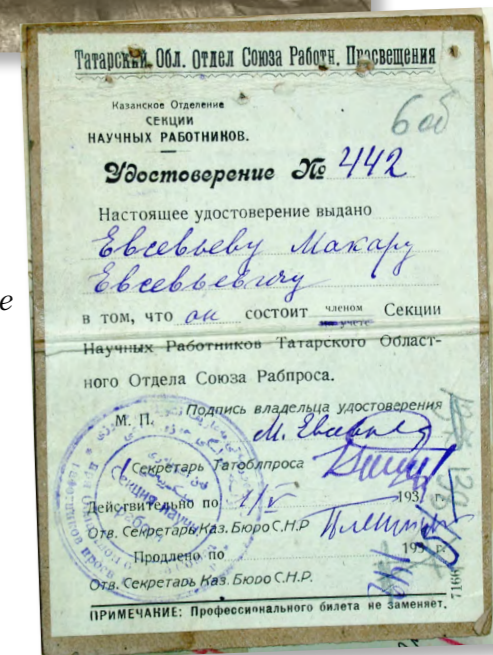 Татарский Обл. Отдел Союза Работн. Просвещения
Казанское Отделение
СЕКЦИИ
НАУЧНЫХ РАБОТНИКОВ.
6 об
Удостоверение № 442
Настоящее удостоверение выдано
Евсевьеву Макару
Евсевьевичу
е
в том, что он состоит членом на учете Секции
Научных Работников Татарского Област-
ного Отдела Союза Рабпроса.
Подпись владельца удостоверения
М. П. М. Евсевьев
Секретарь Татоблпроса
Действительно по 1/V 193 г.
Отв. Секретарь Каз. Бюро С.Н.Р.
Продлено по 193 г.
Отв. Секретарь Каз. Бюро С.Н.Р.
ПРИМЕЧАНИЕ: Профессионального билета не заменяет.
7166
Секция научн.
работн.